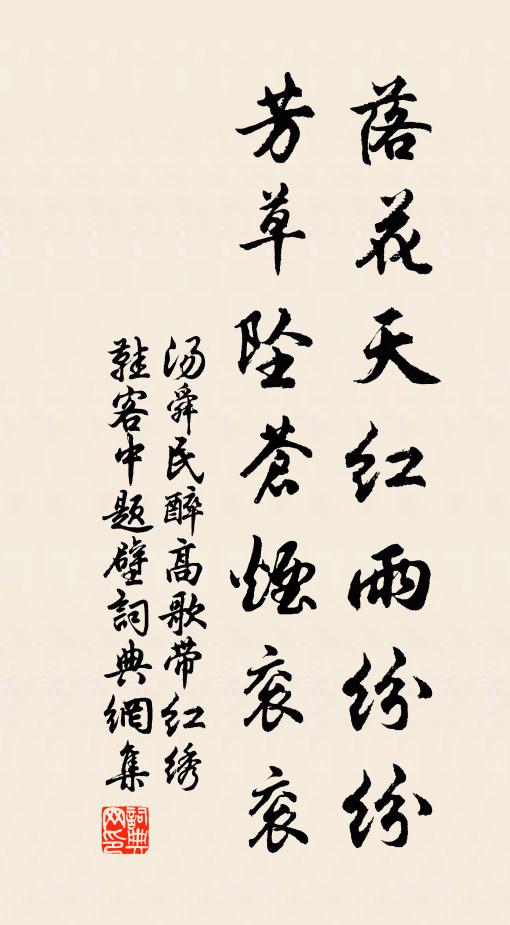 落花天红雨纷纷
芳草坠苍烟衮衮
汤舜民醉高歌带红绣
鞋客中题壁词典網集
詞典网印